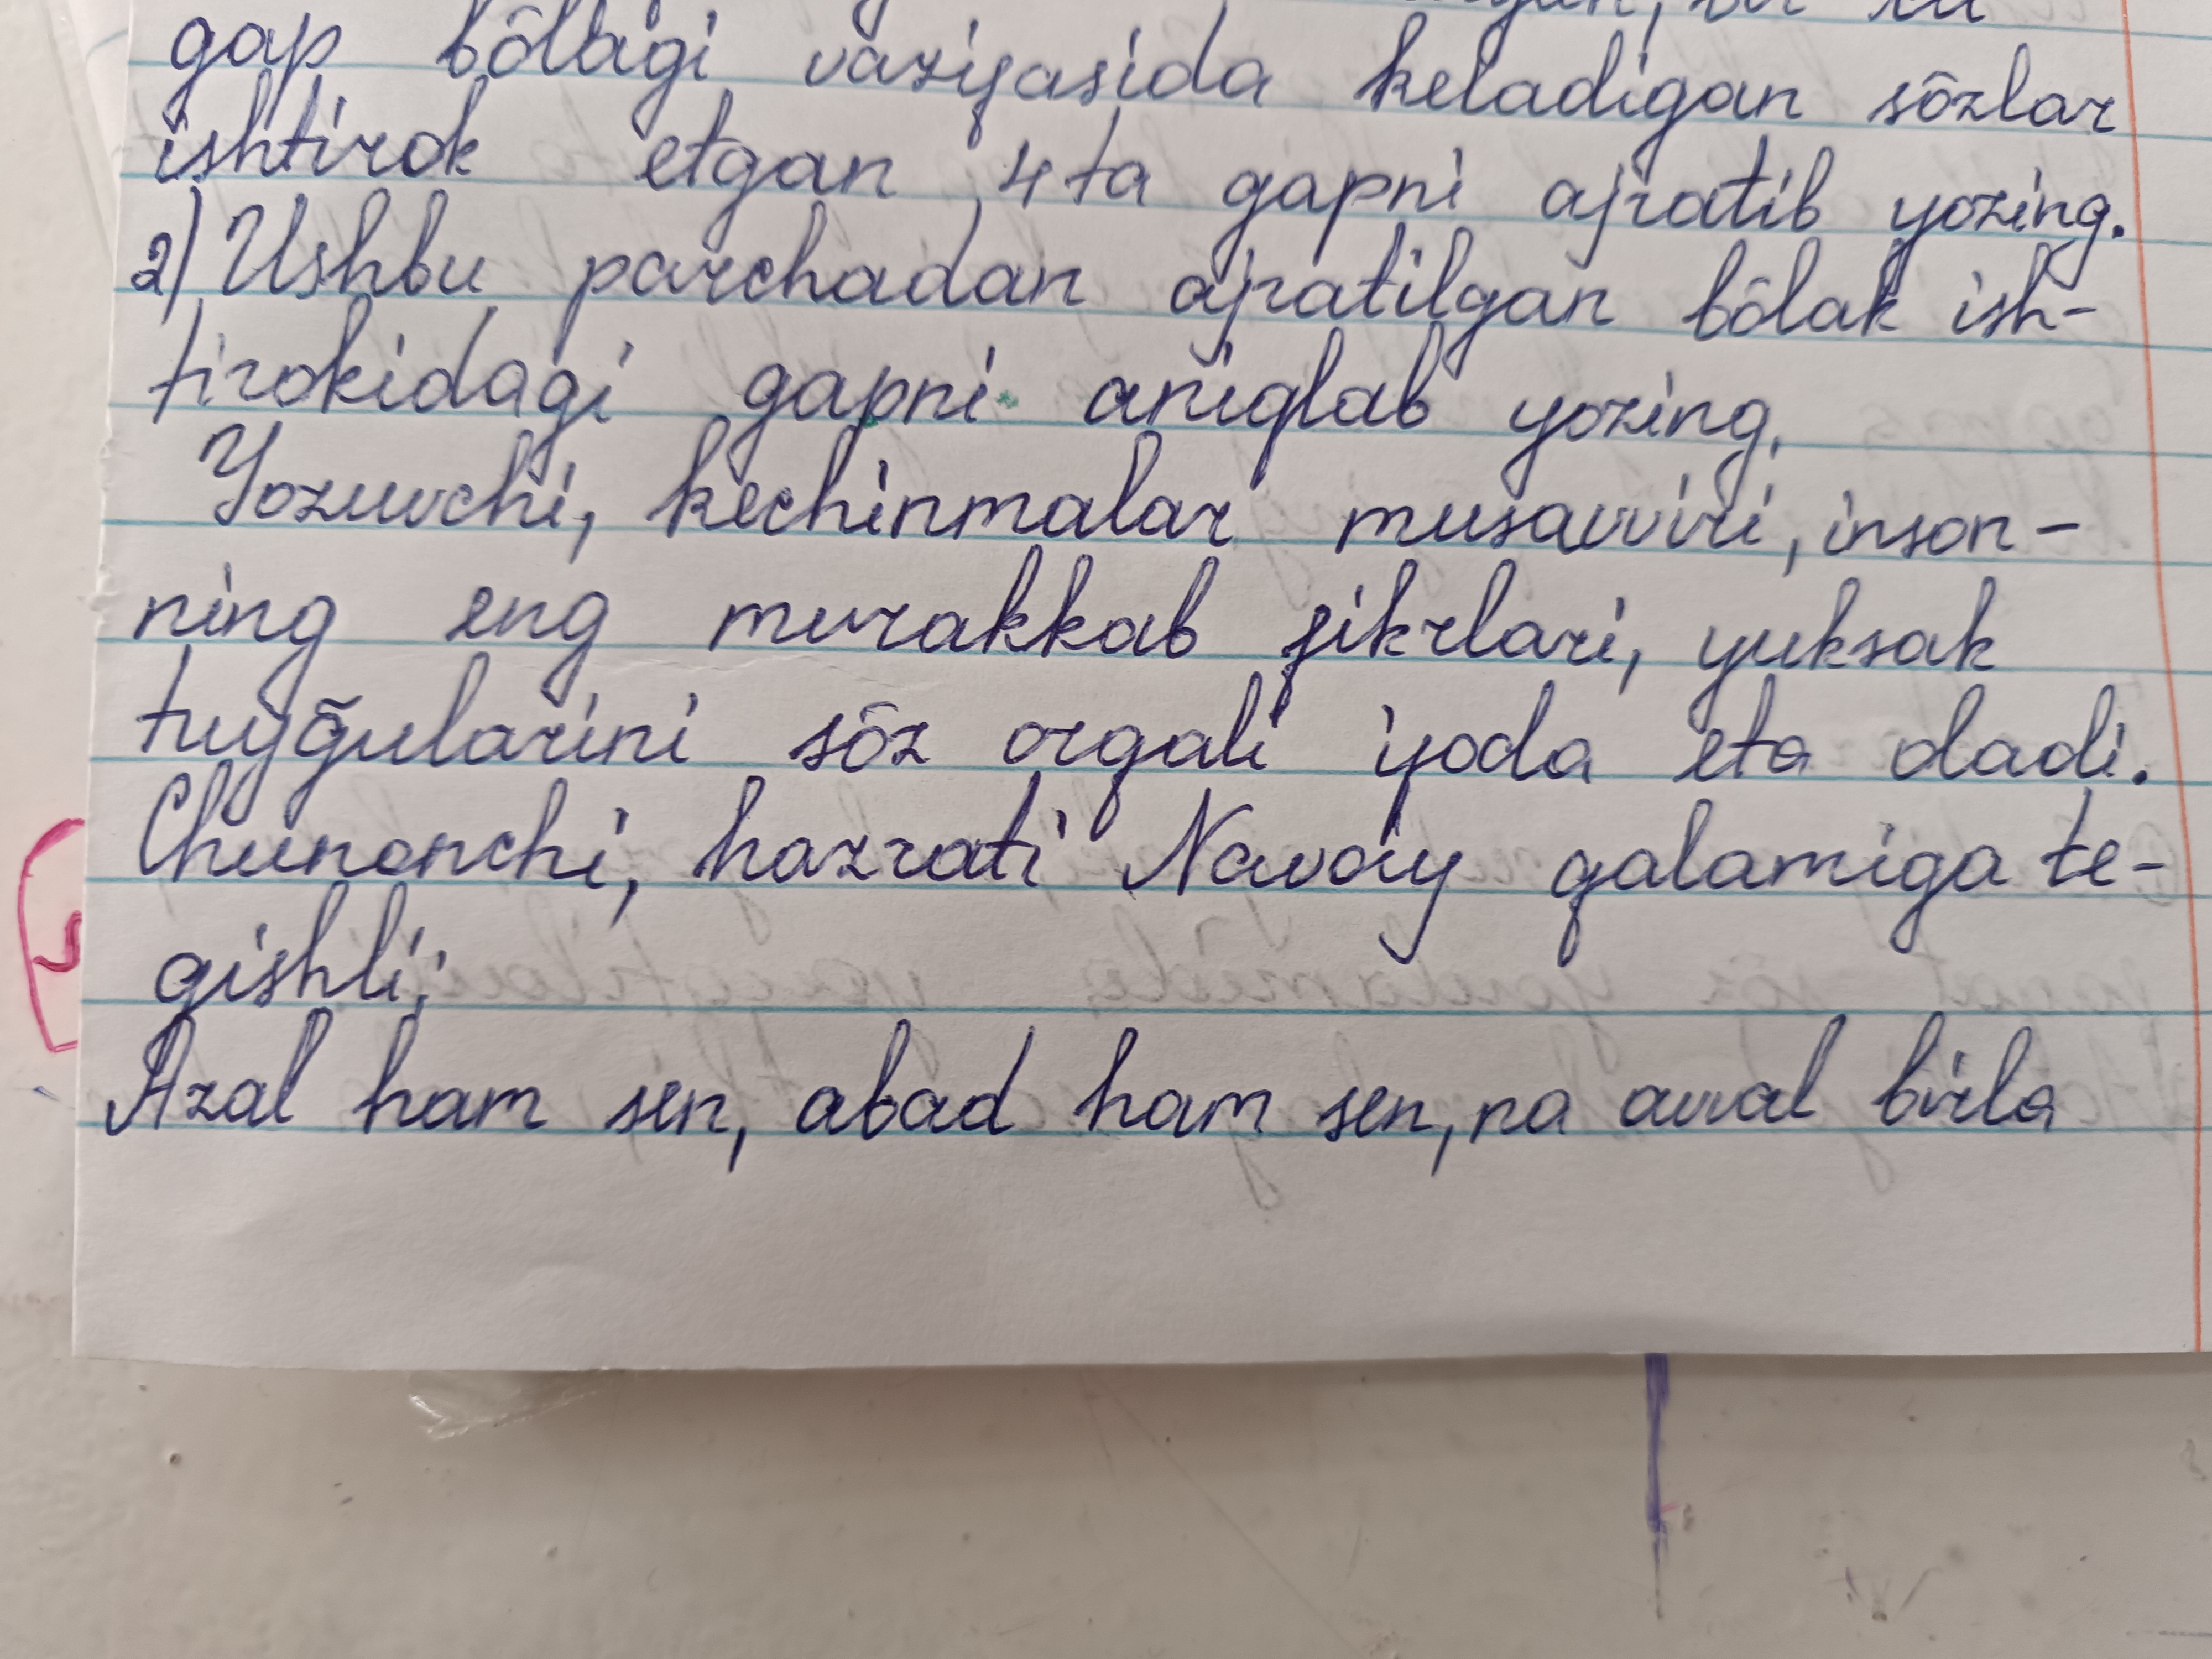 gap bôlagi vazifasida keladigan sôzlar
ishtirok etgan 4 ta gapni ajratib yozing.
2) Ushbu parchadan ajratilgan bôlak ish-
tirokidagi gapni aniqlab yozing.
Yozuvchi, kechinmalar musavviri, inson-
ning eng murakkab fikrlari, yuksak
tuyg̃ularini sôz orqali ifoda eta oladi.
Chunonchi, hazrati Navoiy qalamiga te-
gishli:
Azal ham sen, abad ham sen, na avval birla